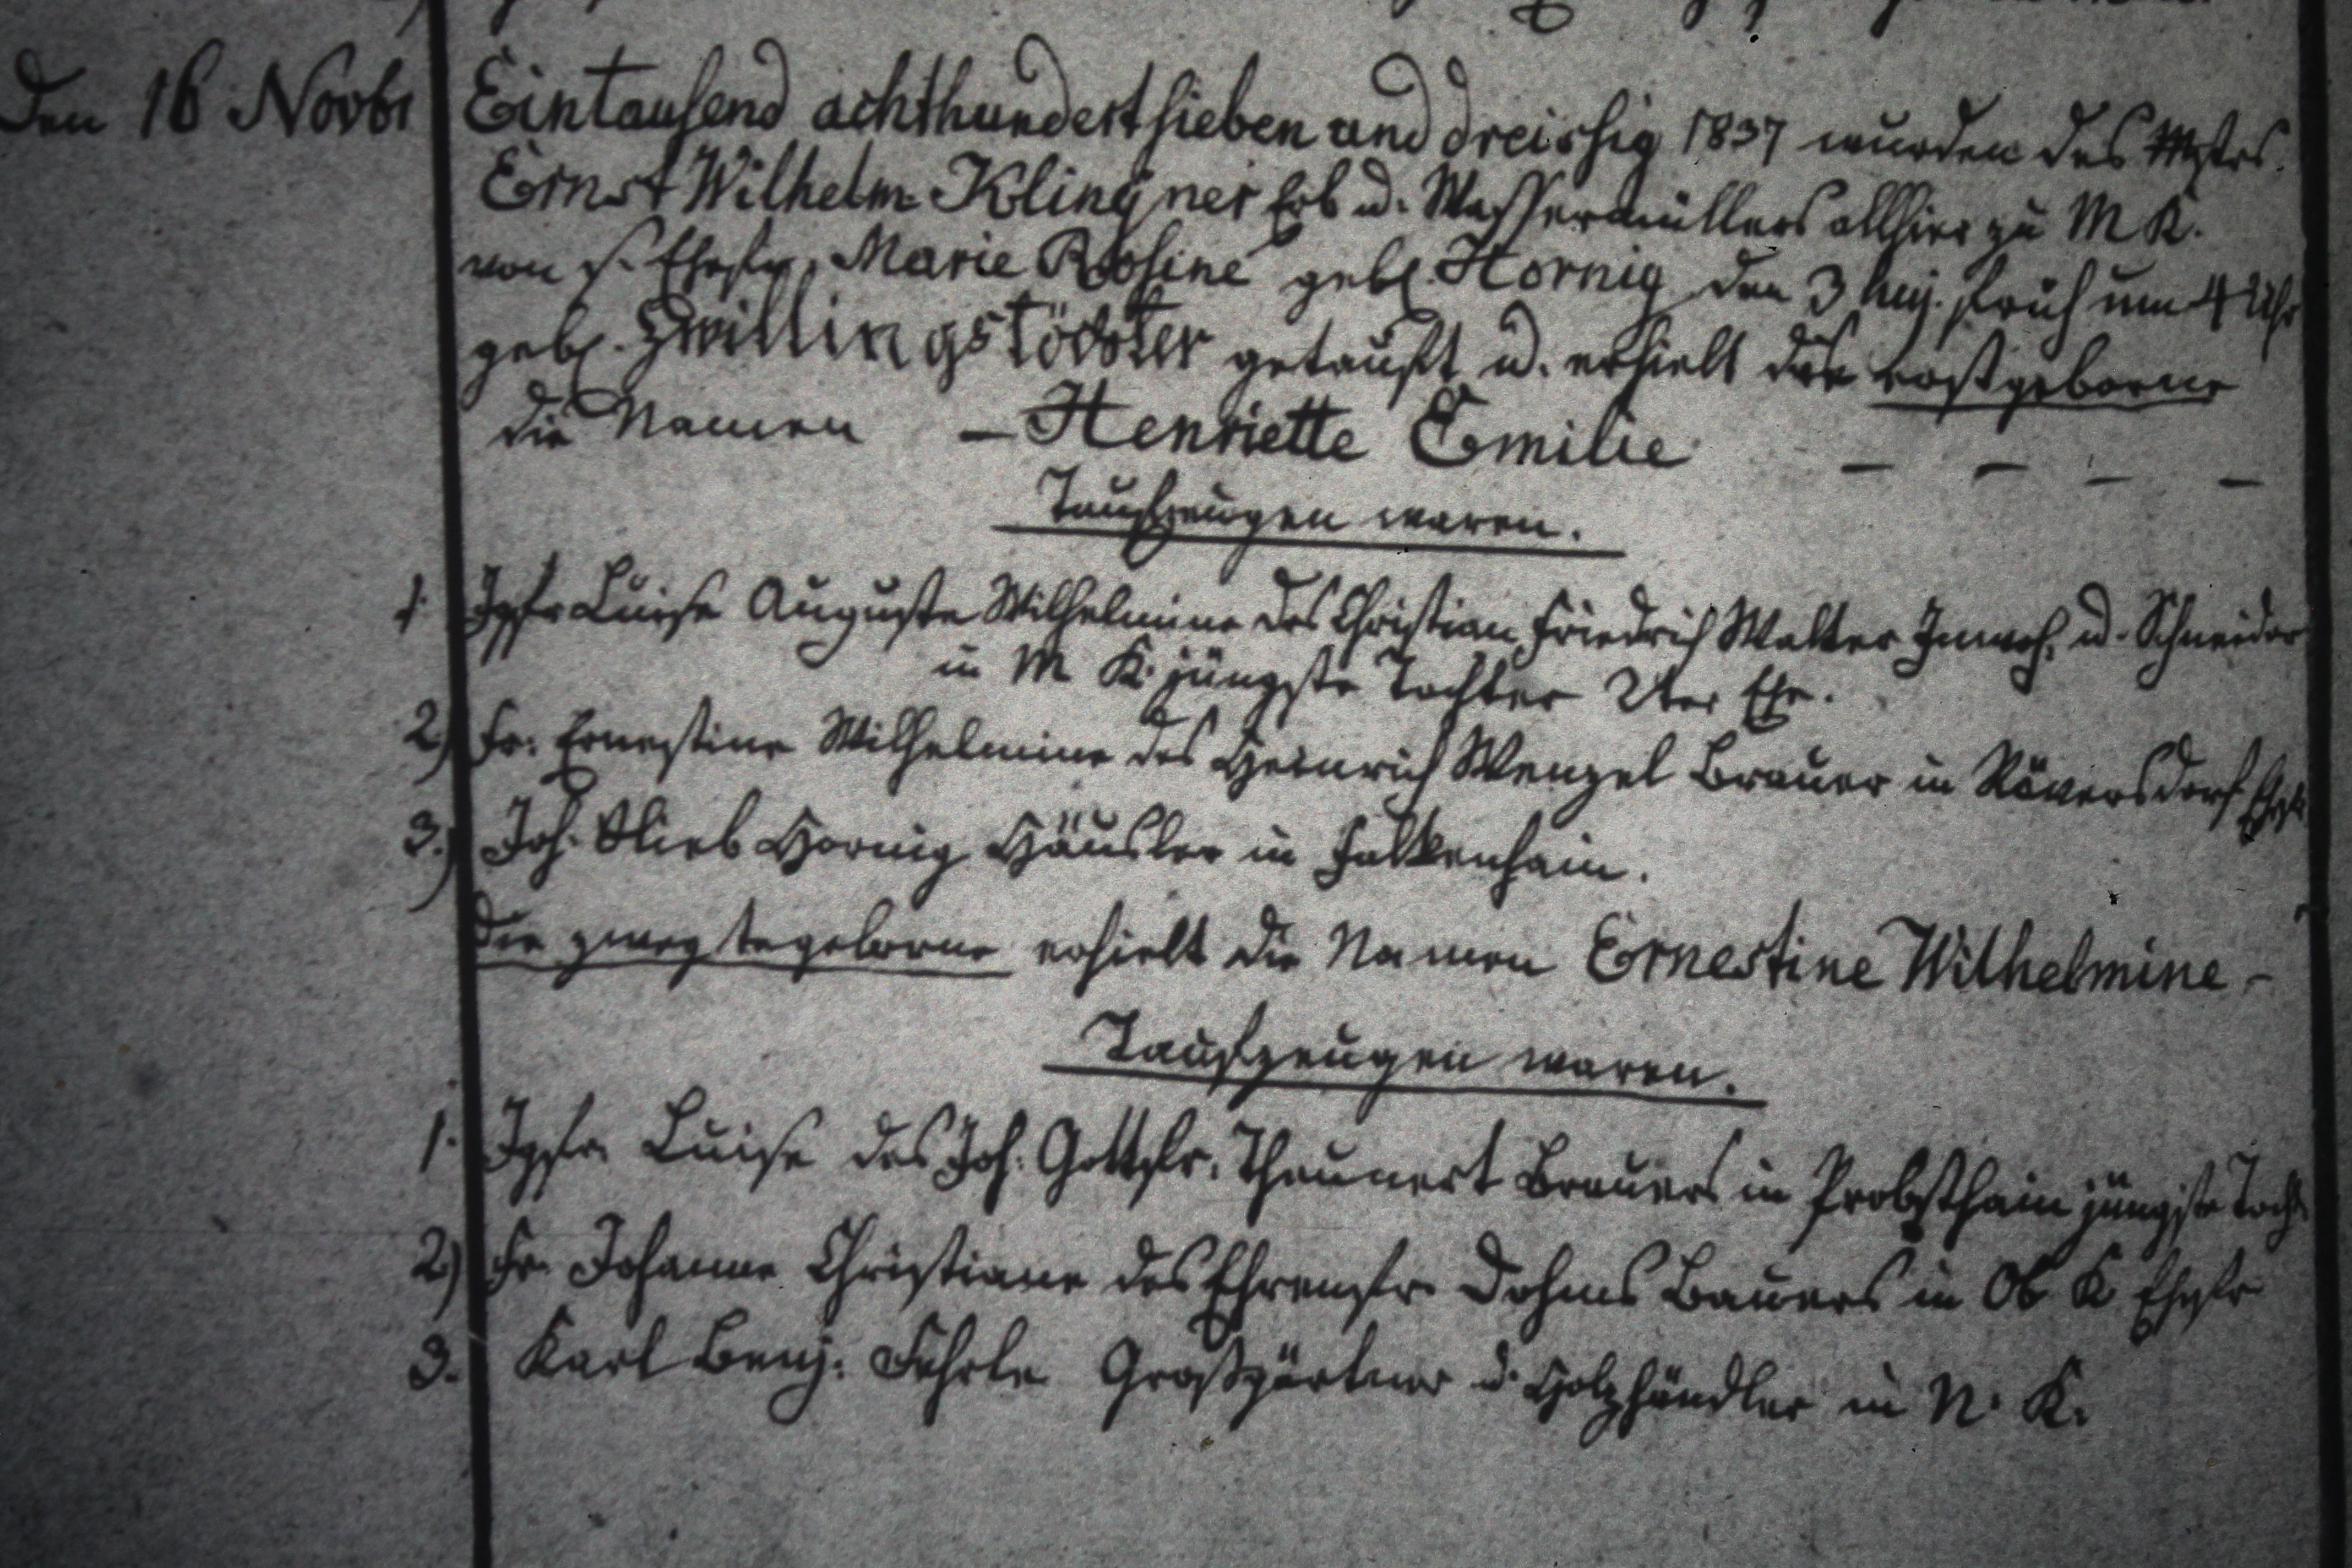 Den 16 Novbr Eintausend achthundert sieben und dreissig 1837 wurden des Mstrs.
Ernst Wilhelm Klingner Erb u. Wassermüllers allhier zu M K.
von s. Ehefr. Marie Rosine geb. Hornig den 3 huj. früh um 4 Uhr
geb. Zwillingstöchter getauft u. erhielt die erstgeborne
die Namen – Henriette Emilie – – – –
Taufzeugen waren.
1. Jgfr Luise Auguste Wilhelmine des Christian Friedrich Walter Inwoh. u. Schneider
in M K. jüngste Tochter 2ter Ehe.
2) Fr. Ernestine Wilhelmine des Heinrich Wenzel Brauer in Röversdorf Ehefr
3.) Joh. Glieb Hornig Häusler in Falkenhain.
Die zweytegeborne erhielt die Namen Ernestine Wilhelmine –
Taufzeugen waren.
1. Jgfr. Luise des Joh. Gottfr. Theunert Brauers in Probsthain jüngste Tocht
2) Fr. Johanne Christiane des Ehrenfr. Dohms Bauers in Ob K Ehefr
3. Karl Benj. Großgärtner u. Holzhändler in N. K.